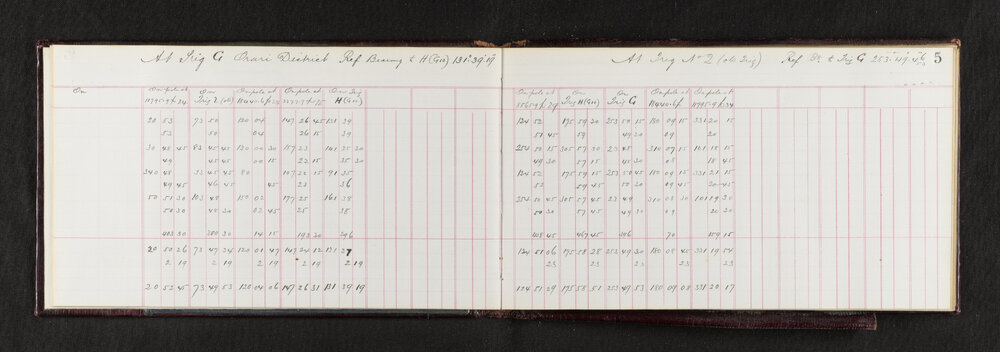 At Trig G Orari District Ref Bearing to H(Geo) 131·39·19
On On pole at On On pole at On pole at On Trig
Trig 2 (old) H(Geo)
20 53 73 50 120 04 147 26 45 131 39
52 50 04 26 15 39
30 45 45 83 45 45 130 00 30 157 23 141 35 30
49 45 45 00 15 22 15 35 30
340 48 33 45 45 80 107 22 15 91 35
49 45 46 45 45 23 36
50 51 30 103 49 150 02 177 25 161 38
50 30 49 30 02 45 25 38
403 30 380 30 14 15 193 30 296
20 50 26 73 47 34 120 01 47 147 24 12 131 37
2 19 2 19 2 19 2 19 2 19
20 52 45 73 49 53 120 04 06 147 26 31 131 39 19
At Trig No 2 (old Trig) Ref Br to Trig G 253·49· 5
On pole at On On On pole at On pole at
Trig H(Geo) Trig G
124 52 175 59 30 253 50 15 180 09 15 331 20 15
51 45 59 49 30 09 20
254 50 15 305 57 30 23 48 310 07 15 101 18 15
49 30 57 15 45 30 08 18 45
124 52 175 59 15 253 50 45 180 09 15 331 21 15
52 59 45 50 30 09 45 20 45
254 50 45 305 57 45 23 49 310 08 30 101 19 30
50 30 57 45 49 30 09 20 30
408 45 467 45 396 70 159 15
124 51 06 175 58 28 253 49 30 180 08 45 331 19 54
23 23 23 23 23
124 51 29 175 58 51 253 49 53 180 09 08 331 20 17